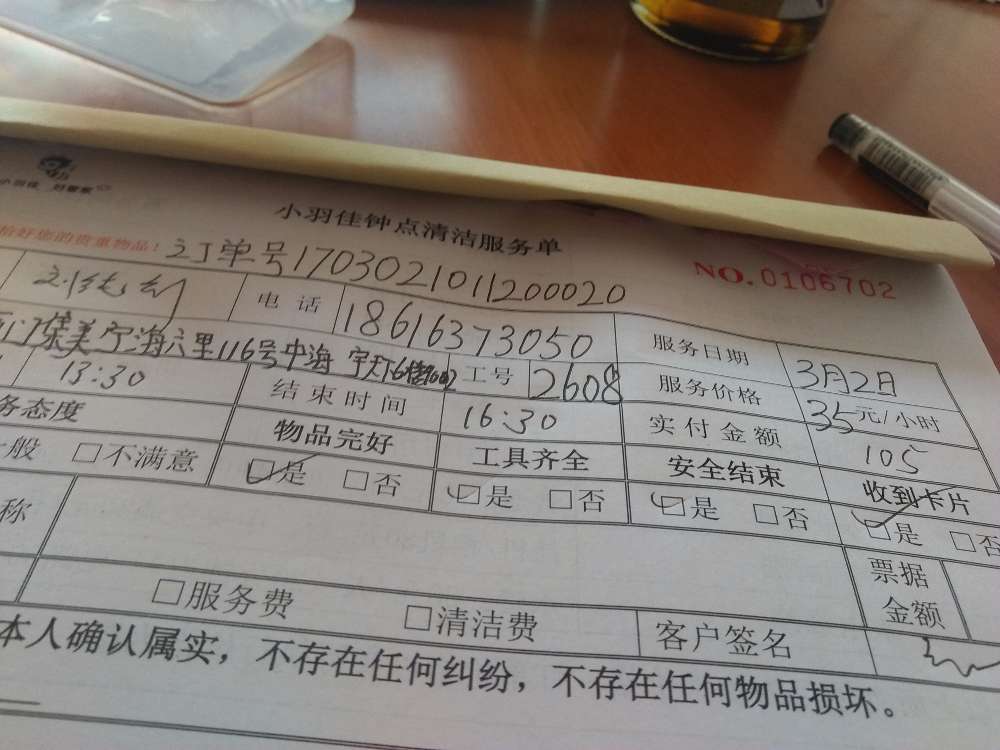 小羽佳 好管家
小羽佳钟点清洁服务单
拾好您的贵重物品！ 订单号170302101120020
NO.0106702
电话 18616373050 服务日期 3月2日
集美宁海六里116号中海 工号 2608 服务价格 35元/小时
13:30 结束时间 16:30 实付金额 105
务态度 物品完好 工具齐全 安全结束 收到卡片
一般 □不满意 □是 □否 □是 □否 □是 □否 □是 □否
称
票据金额
□服务费 □清洁费 客户签名
本人确认属实，不存在任何纠纷，不存在任何物品损坏。